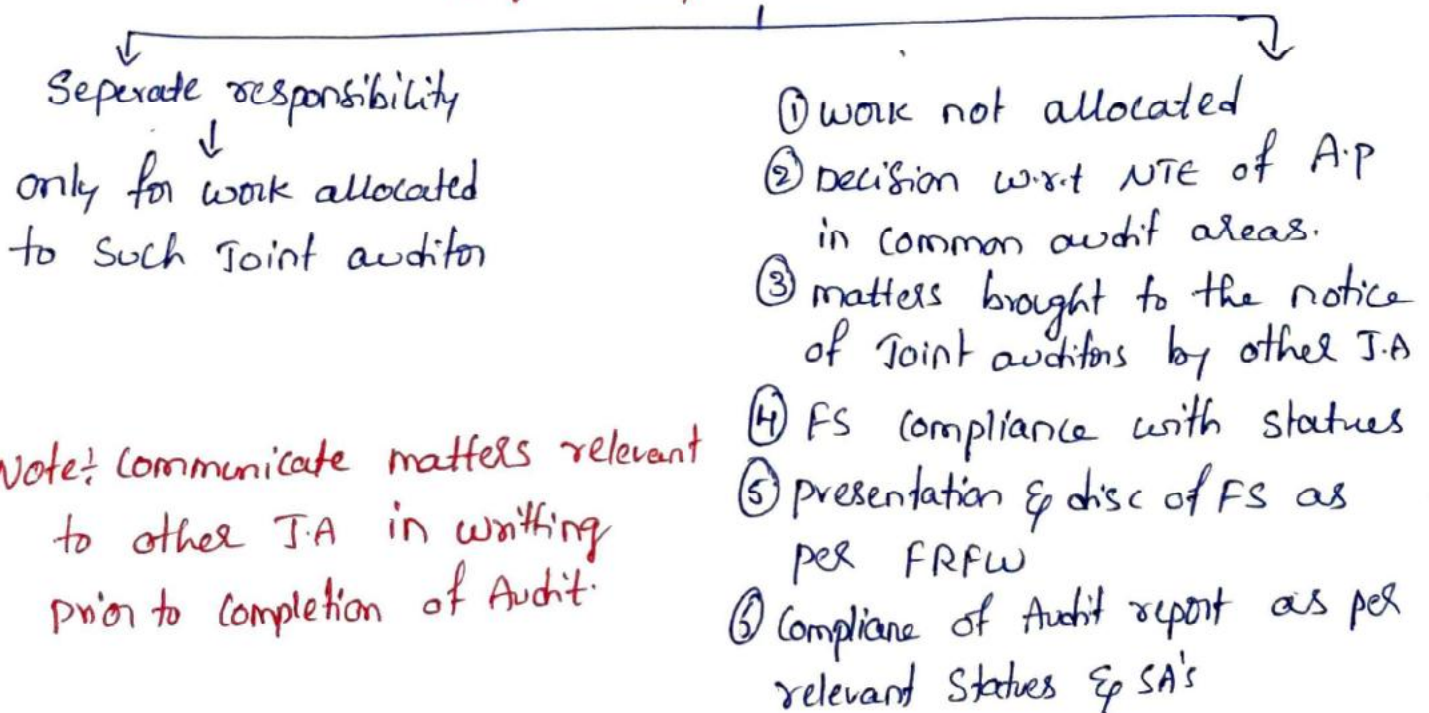 Seperate responsibility
only for work allocated
to such Joint auditor
Note: Communicate matters relevant
to other J.A in writting
prior to completion of Audit.
① work not allocated
② Decision w.r.t NTE of A.P
in common audit areas.
③ matters brought to the notice
of Joint auditors by other J.A
④ FS compliance with statues
⑤ presentation & disc of FS as
per FRFW
⑥ Compliane of Audit report as per
relevant Statues & SA's